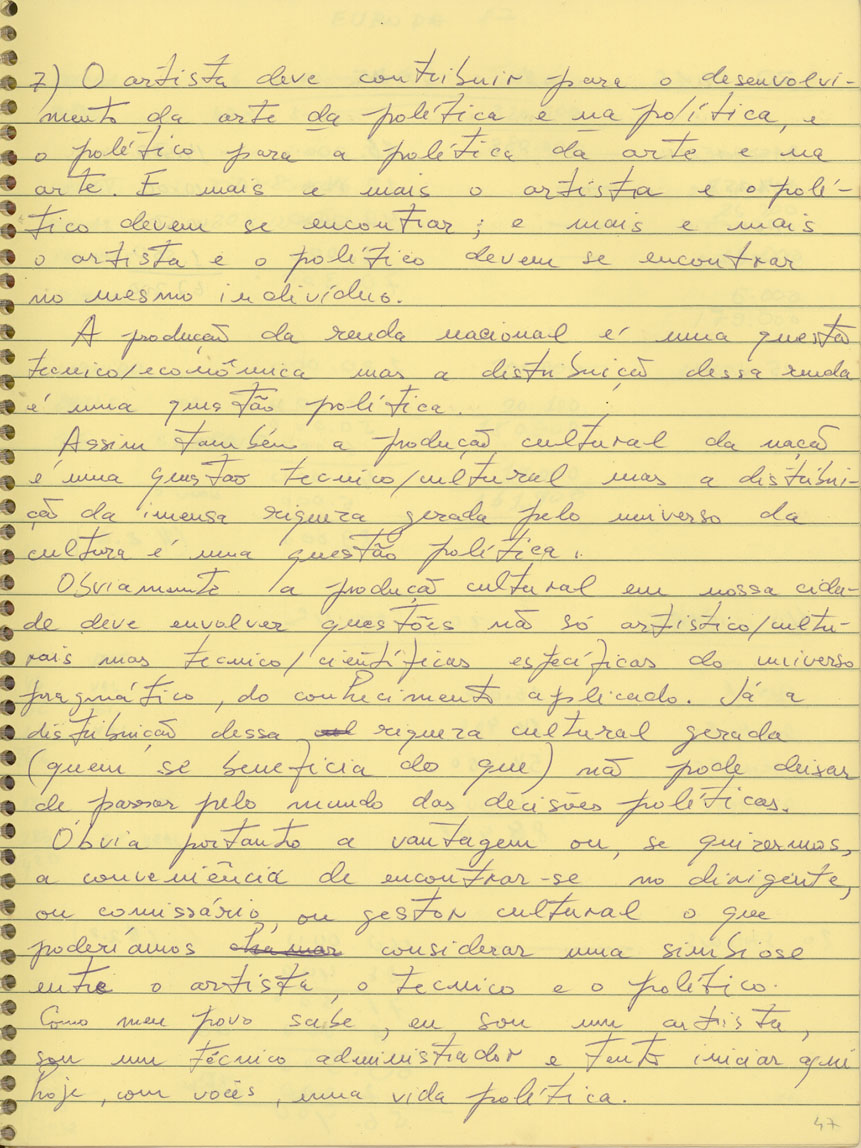 7) O artista deve contribuir para o desenvolvi-
mento da arte da política e na política, e
o político para a política da arte e na
arte. E mais e mais o artista e o polí-
tico devem se encontrar; e mais e mais
o artista e o político devem se encontrar
no mesmo indivíduo.
A produção da renda nacional é uma questão
tecnico/econômica mas a distribuição dessa renda
é uma questão política.
Assim também a produção cultural da nação
é uma questão tecnico/cultural mas a distribui-
ção da imensa riqueza gerada pelo universo da
cultura é uma questão política.
Obviamente a produção cultural em nossa cida-
de deve envolver questões não só artístico/cultu-
rais mas tecnico/científicas específicas do universo
pragmático, do conhecimento aplicado. Já a
distribuição dessa riqueza cultural gerada
(quem se beneficia do que) não pode deixar
de passar pelo mundo das decisões políticas.
Óbvia portanto a vantagem ou, se quizermos,
a conveniência de encontrar-se no dirigente,
ou comissário, ou gestor cultural o que
poderíamos chamar considerar uma simbiose
entre o artista, o tecnico e o político.
Como meu povo sabe, eu sou um artista,
sou um técnico administrador e tento iniciar aqui
hoje, com vocês, uma vida política.
47